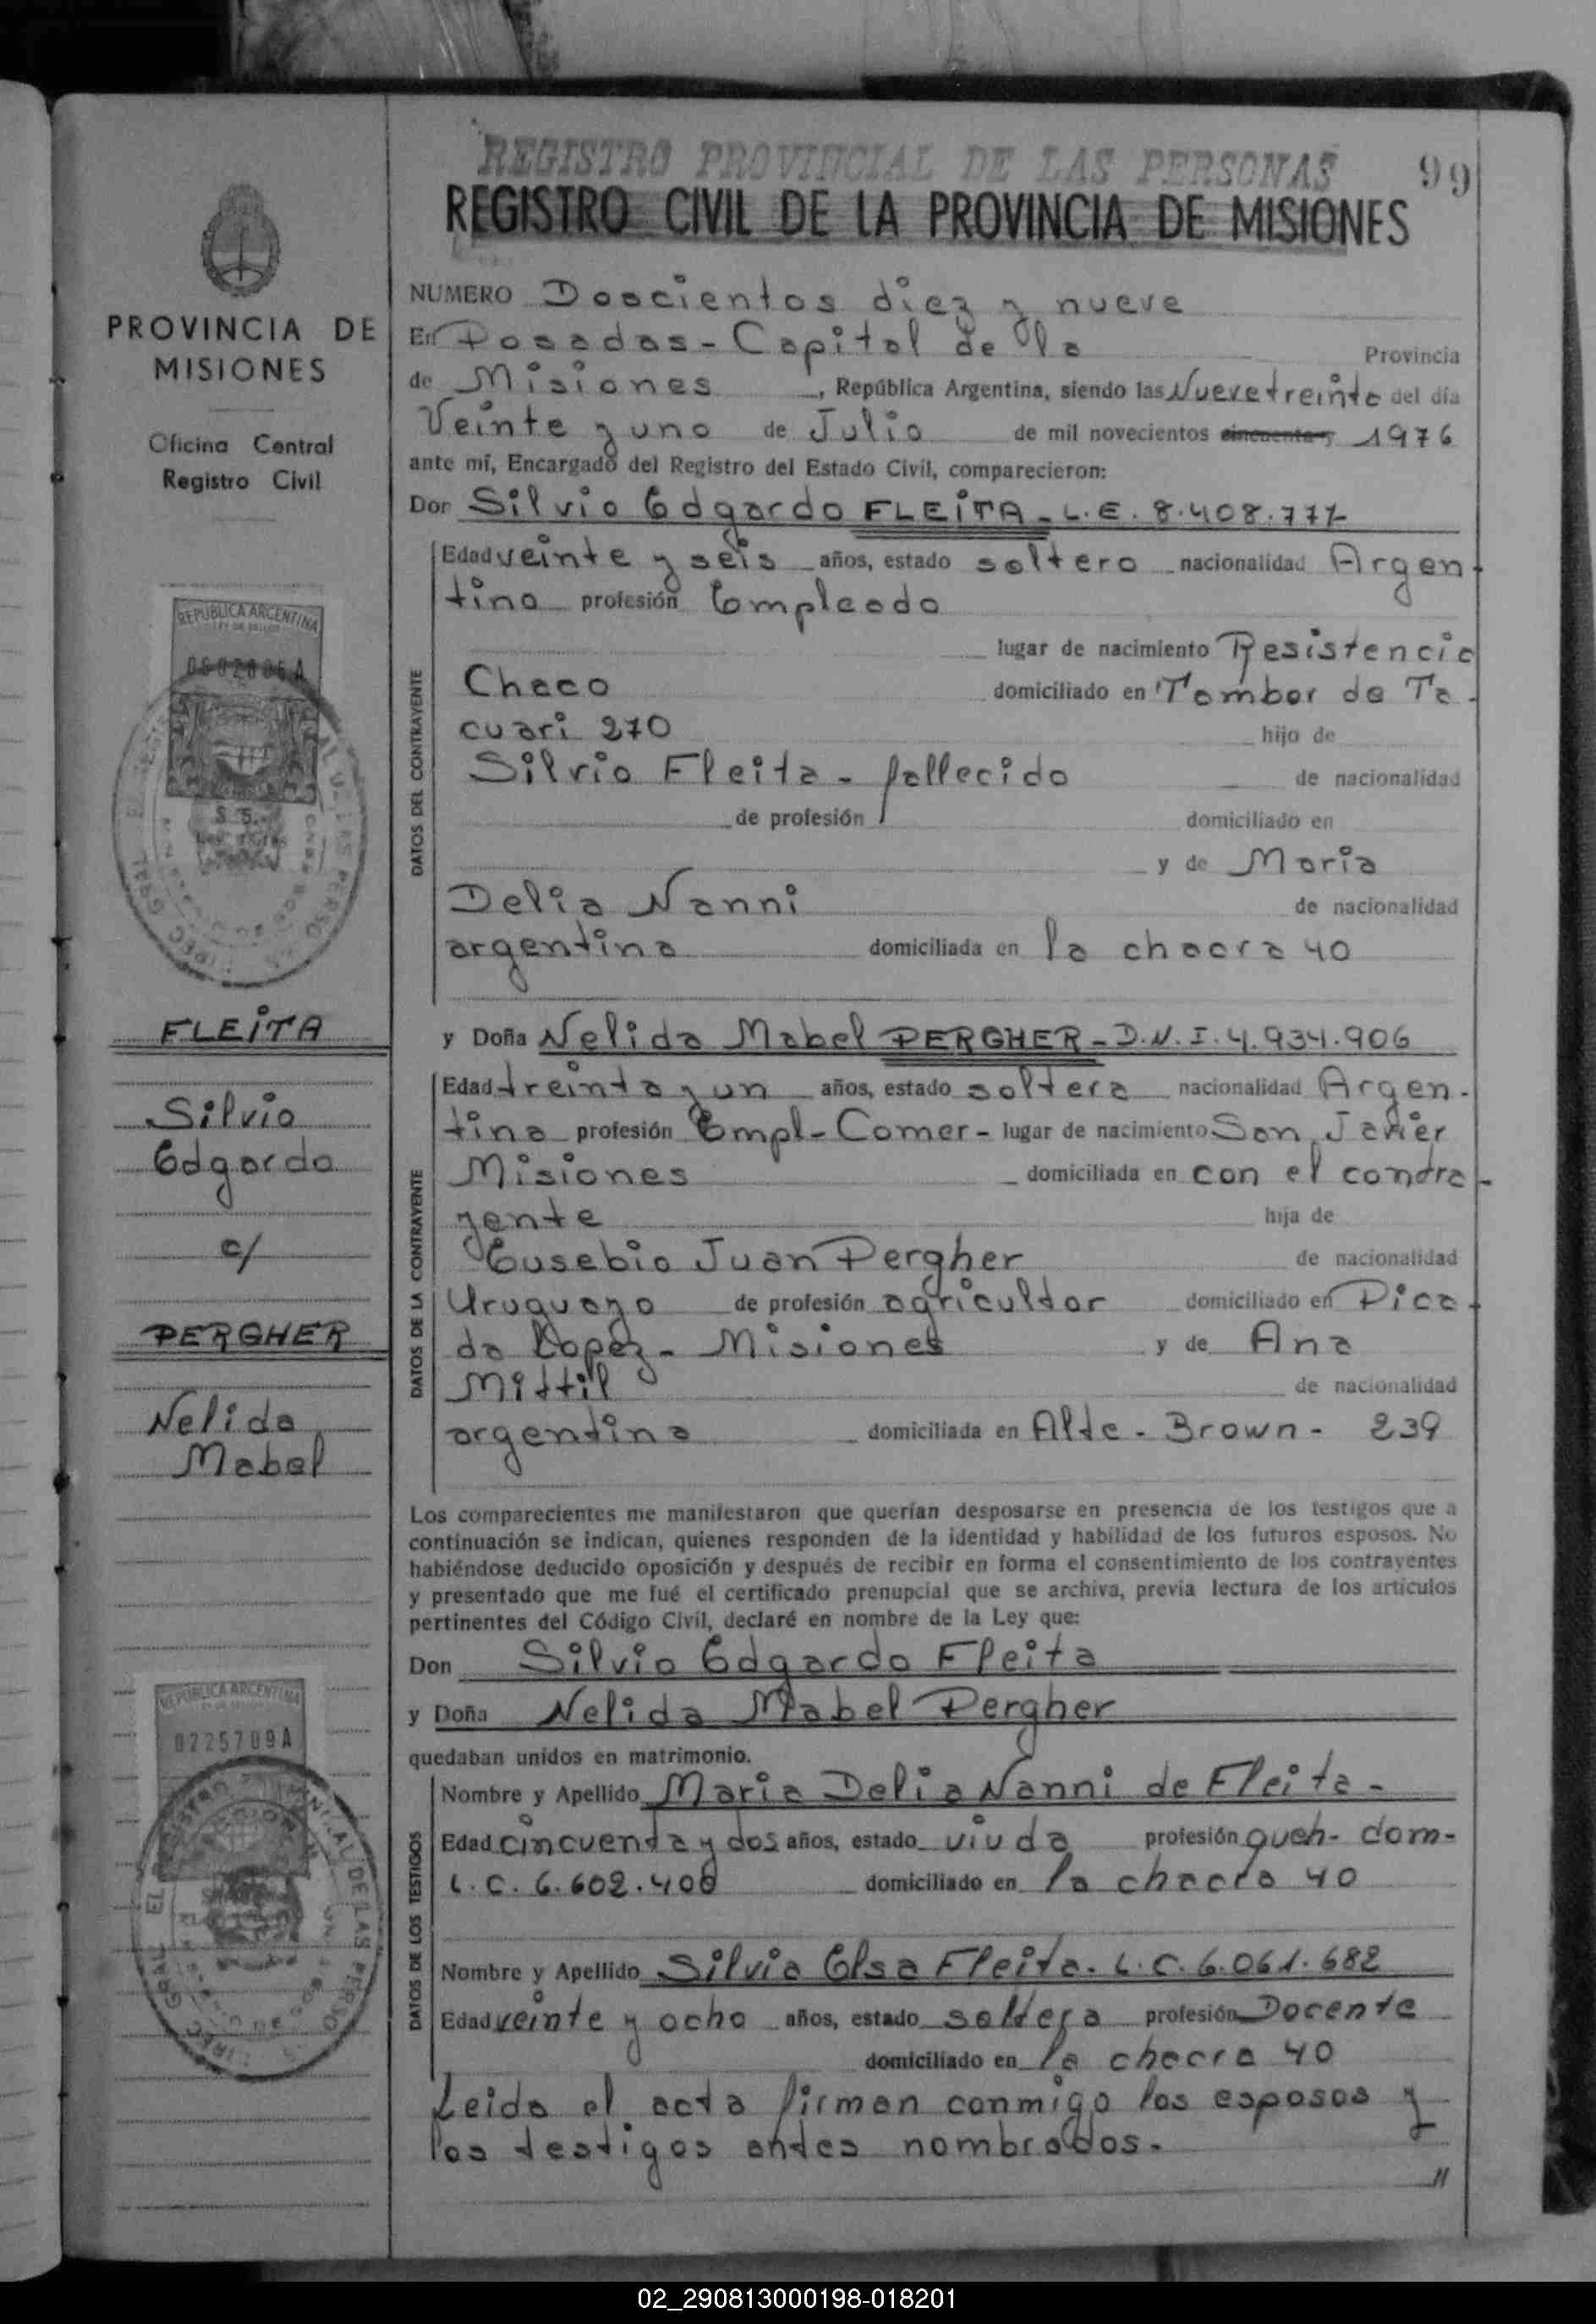 REGISTRO PROVINCIAL DE LAS PERSONAS 99
REGISTRO CIVIL DE LA PROVINCIA DE MISIONES
PROVINCIA DE
MISIONES
Oficina Central
Registro Civil
REPUBLICA ARGENTINA
FLEITA
Silvio
Edgardo
c/
PERGHER
Nelida
Mabel
REPUBLICA ARGENTINA
0225709A
NUMERO Doscientos diez y nueve
En Posadas - Capital de la Provincia
de Misiones, República Argentina, siendo las Nueve treinta del día
Veinte y uno de Julio de mil novecientos cincuenta y 1976
ante mí, Encargado del Registro del Estado Civil, comparecieron:
Don Silvio Edgardo FLEITA - L.E. 8.408.777
DATOS DEL CONTRAYENTE
Edad veinte y seis años, estado soltero nacionalidad Argen-
tino profesión Empleado
lugar de nacimiento Resistencia
Chaco domiciliado en Tambor de Ta-
cuari 270 hijo de
Silvio Fleita - fallecido de nacionalidad
de profesión domiciliado en
y de Maria
Delia Nanni de nacionalidad
argentina domiciliada en la chacra 40
y Doña Nelida Mabel PERGHER - D.N.I. 4.934.906
DATOS DE LA CONTRAYENTE
Edad treinta y un años, estado soltera nacionalidad Argen-
tina profesión Empl- Comer- lugar de nacimiento San Javier
Misiones domiciliada en con el contra-
yente hija de
Eusebio Juan Pergher de nacionalidad
Uruguayo de profesión agricultor domiciliado en Pica-
da Lopez - Misiones y de Ana
Mittil de nacionalidad
argentina domiciliada en Alte - Brown - 239
Los comparecientes me manifestaron que querían desposarse en presencia de los testigos que a
continuación se indican, quienes responden de la identidad y habilidad de los futuros esposos. No
habiéndose deducido oposición y después de recibir en forma el consentimiento de los contrayentes
y presentado que me fué el certificado prenupcial que se archiva, previa lectura de los artículos
pertinentes del Código Civil, declaré en nombre de la Ley que:
Don Silvio Edgardo Fleita
y Doña Nelida Mabel Pergher
quedaban unidos en matrimonio.
DATOS DE LOS TESTIGOS
Nombre y Apellido Maria Delia Nanni de Fleita -
Edad cincuenta y dos años, estado viuda profesión queh- dom-
L.C. 6.602.408 domiciliado en la chacra 40
Nombre y Apellido Silvia Elsa Fleita - L.C. 6.061.682
Edad veinte y ocho años, estado soltera profesión Docente
domiciliado en la chacra 40
Leida el acta firman conmigo los esposos y
los testigos antes nombrados.
//
02_290813000198-018201